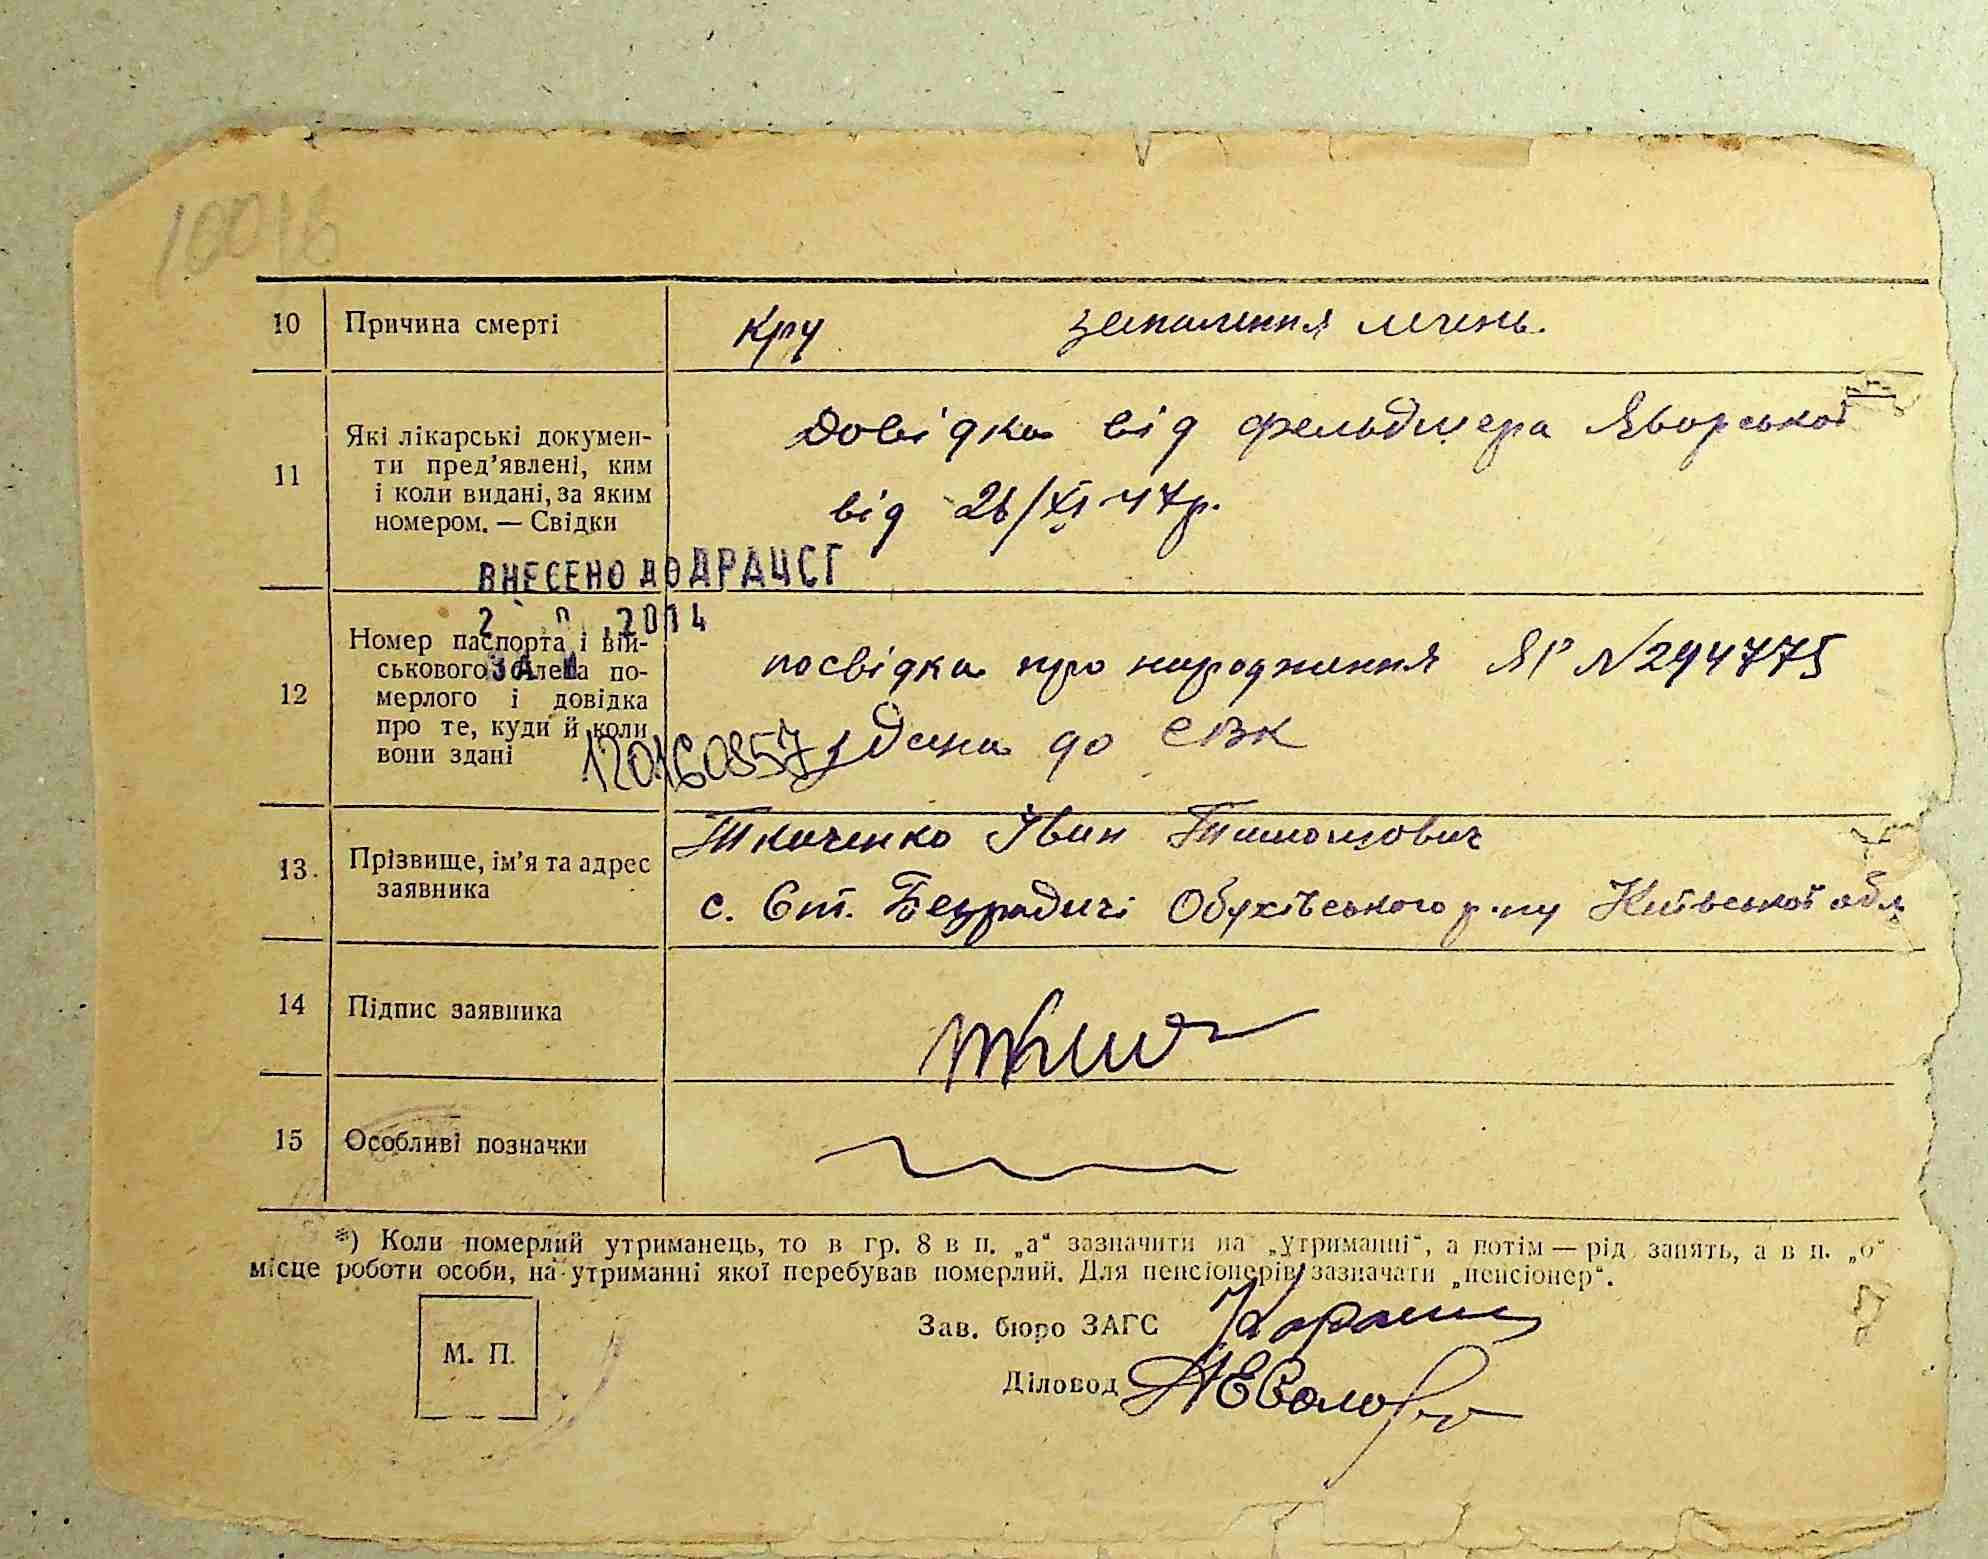 16016
10 Причина смерті
Кру запалення легень.
11 Які лікарські докумен-
ти пред'явлені, ким
і коли видані, за яким
номером. — Свідки
Довідка від фельдшера Яворської
від 26/XI 47р.
ВНЕСЕНО ДО ДРАЦСГ
2 2014
ЗА №
12 Номер паспорта і вій-
ськового білета по-
мерлого і довідка
про те, куди й коли
вони здані
посвідка про народження ЯР №294775
1201608573
здана до СВК
13. Прізвище, ім'я та адрес
заявника
Ткаченко Іван Тимошович
с. Ст. Безрадичі Обухівського р-ну Київської обл
14 Підпис заявника
15 Особливі позначки
*) Коли померлий утриманець, то в гр. 8 в п. „а“ зазначити на „утриманні“, а потім — рід занять, а в п. „о“
місце роботи особи, на утриманні якої перебував померлий. Для пенсіонерів зазначати „пенсіонер“.
Зав. бюро ЗАГС
М. П.
Діловод